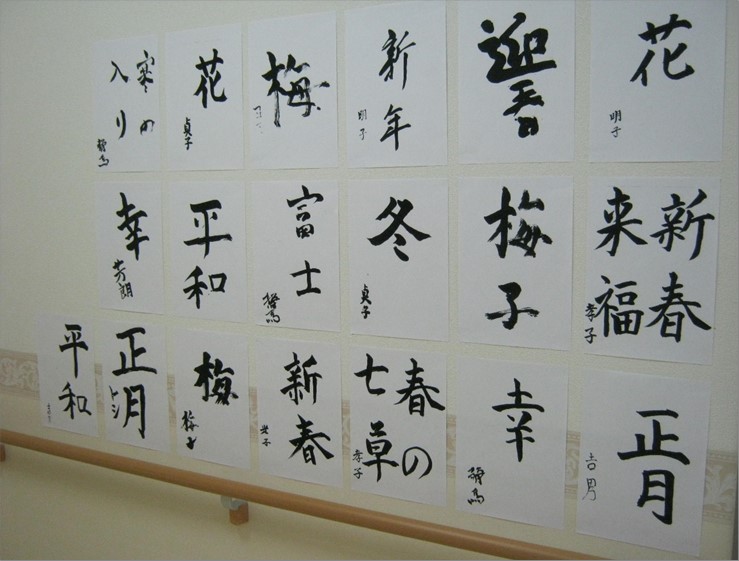 花
明子
迎春
新年
明子
梅
花
貞子
寒の
入り
新春
来福
孝子
梅子
冬
貞子
富士
平和
幸
芳朗
正月
吉男
幸
春の
七草
孝子
新春
梅
梅子
正月
トシ
平和